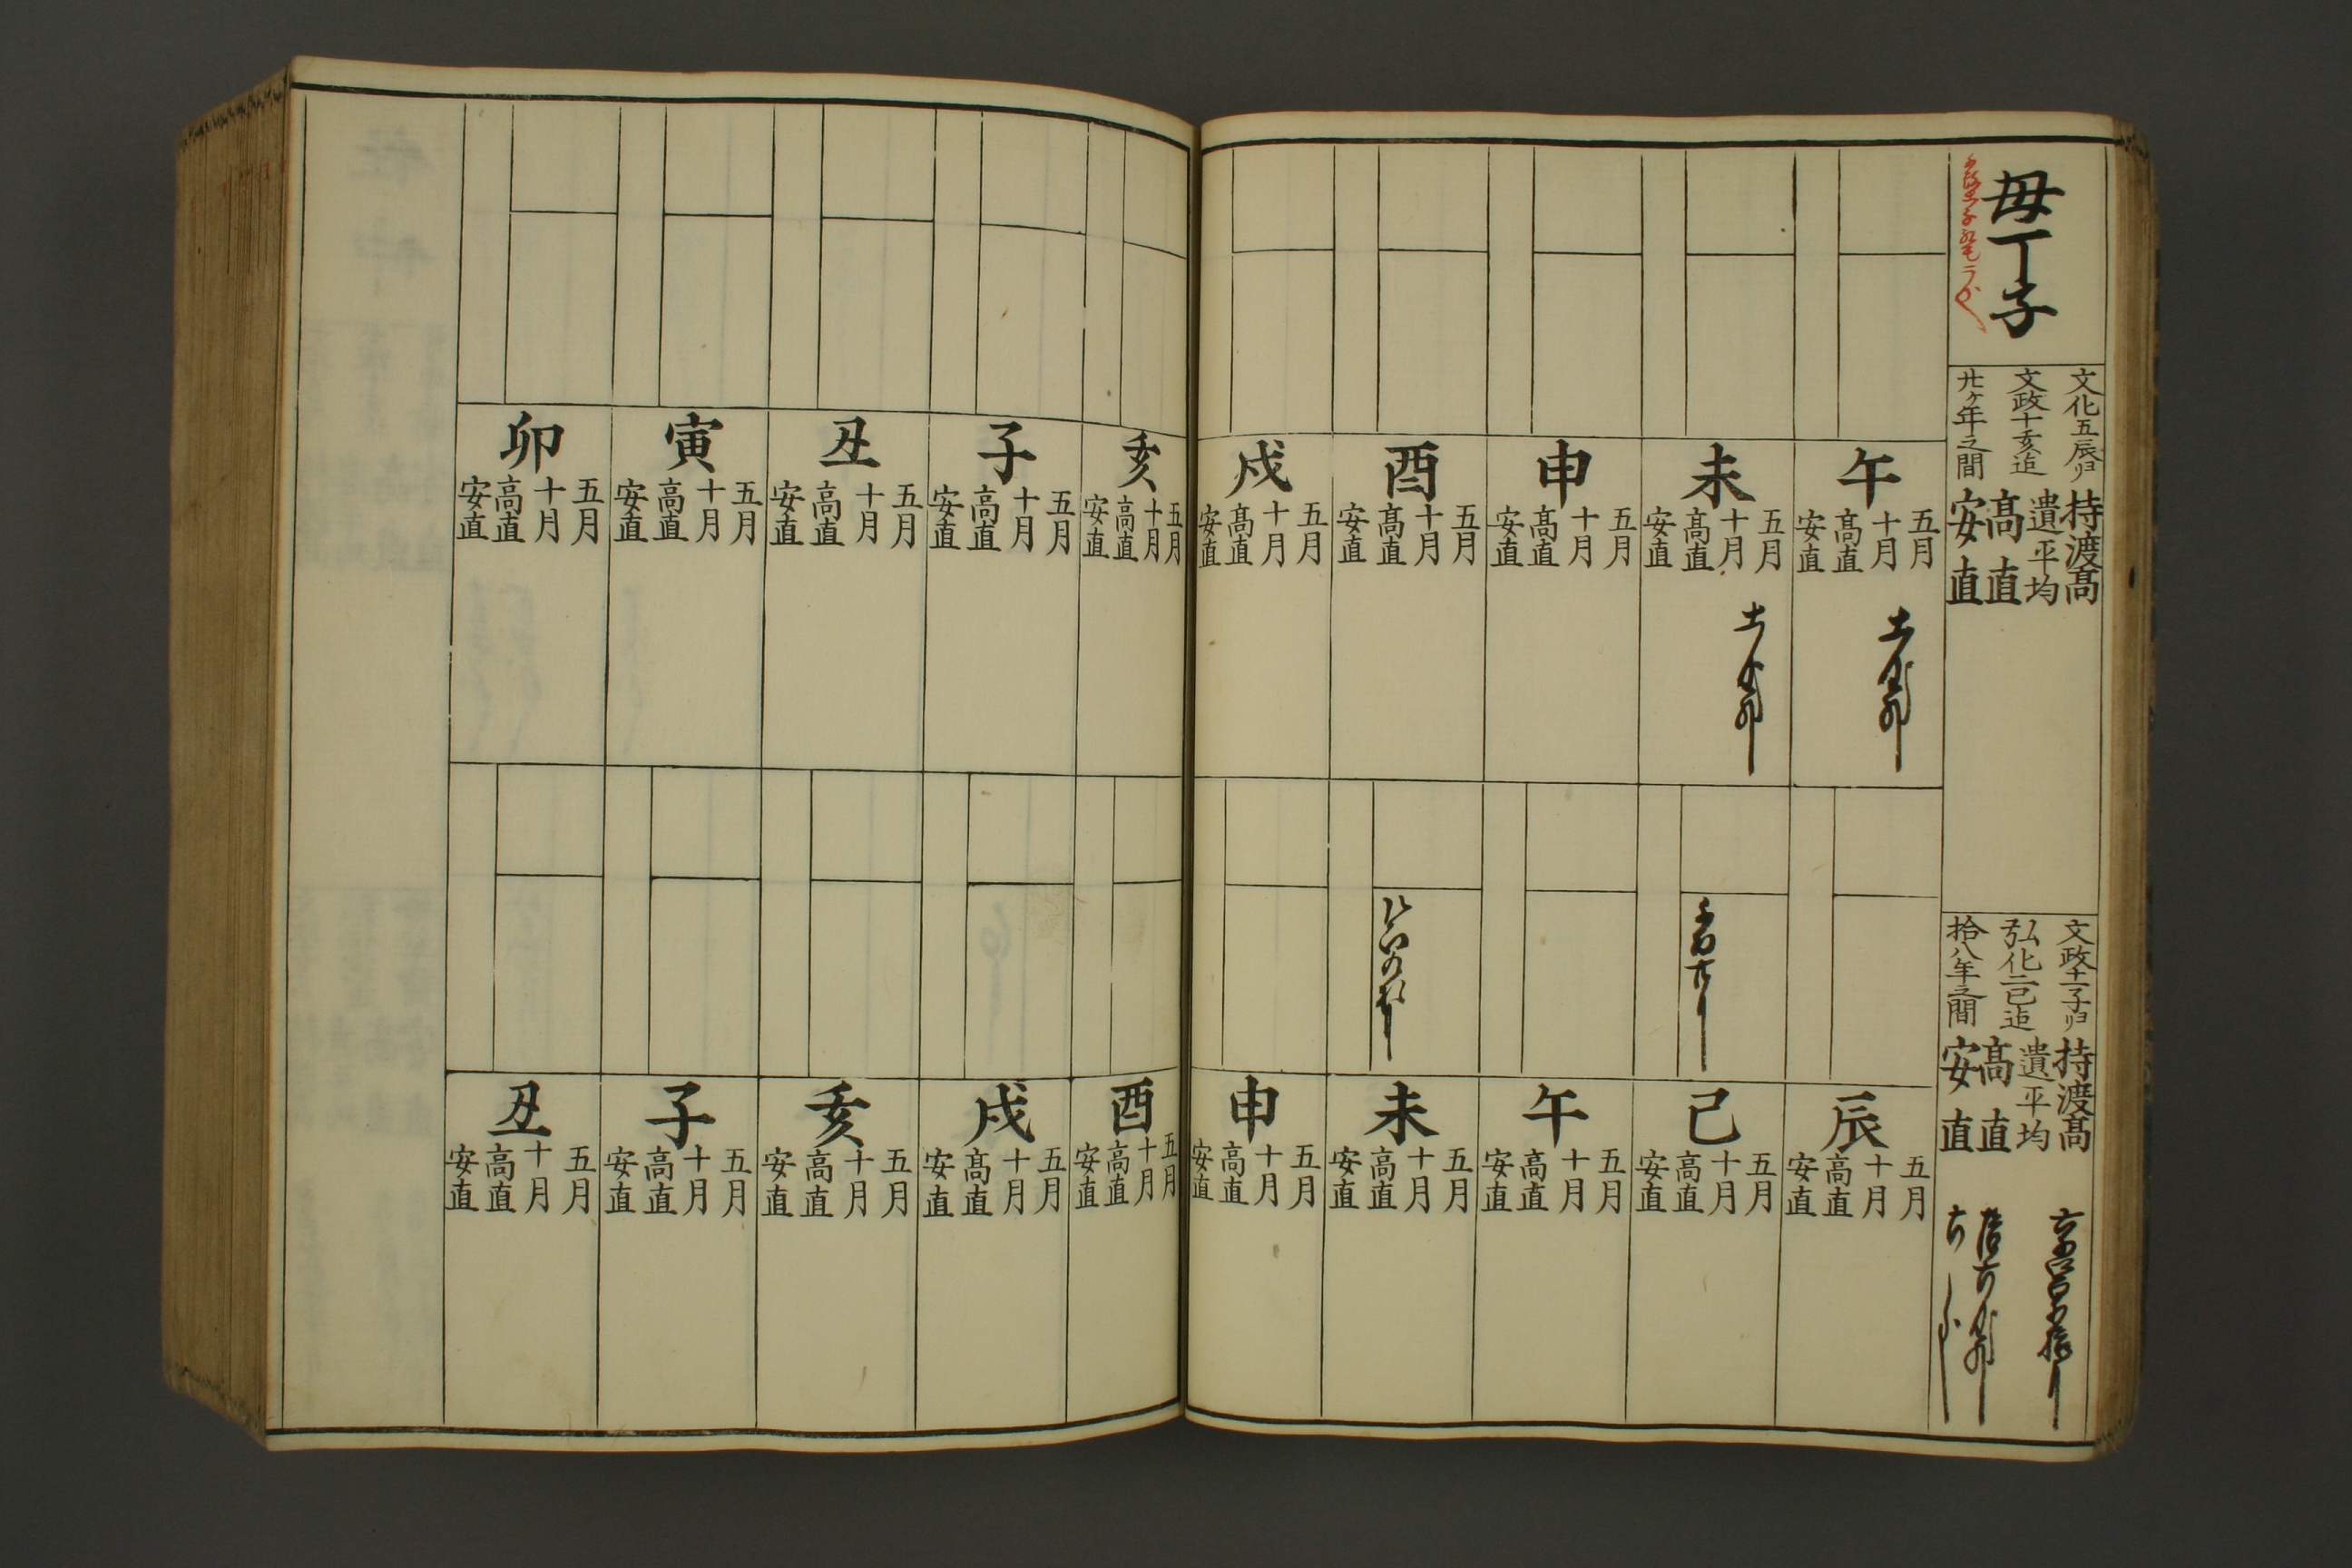 母丁子
文化五辰ゟ
文政十亥迄
廿ヶ年之間
持渡高
遣平均
高直
安直
文政十一子ゟ
弘化二巳迄
拾八年之間
持渡高
遣平均
高直
安直
午
五月
十月
高直
安直
未
五月
十月
高直
安直
申
五月
十月
高直
安直
酉
五月
十月
高直
安直
戌
五月
十月
高直
安直
辰
五月
十月
高直
安直
巳
五月
十月
高直
安直
午
五月
十月
高直
安直
未
五月
十月
高直
安直
申
五月
十月
高直
安直
亥
五月
十月
高直
安直
子
五月
十月
高直
安直
丑
五月
十月
高直
安直
寅
五月
十月
高直
安直
卯
五月
十月
高直
安直
酉
五月
十月
高直
安直
戌
五月
十月
高直
安直
亥
五月
十月
高直
安直
子
五月
十月
高直
安直
丑
五月
十月
高直
安直